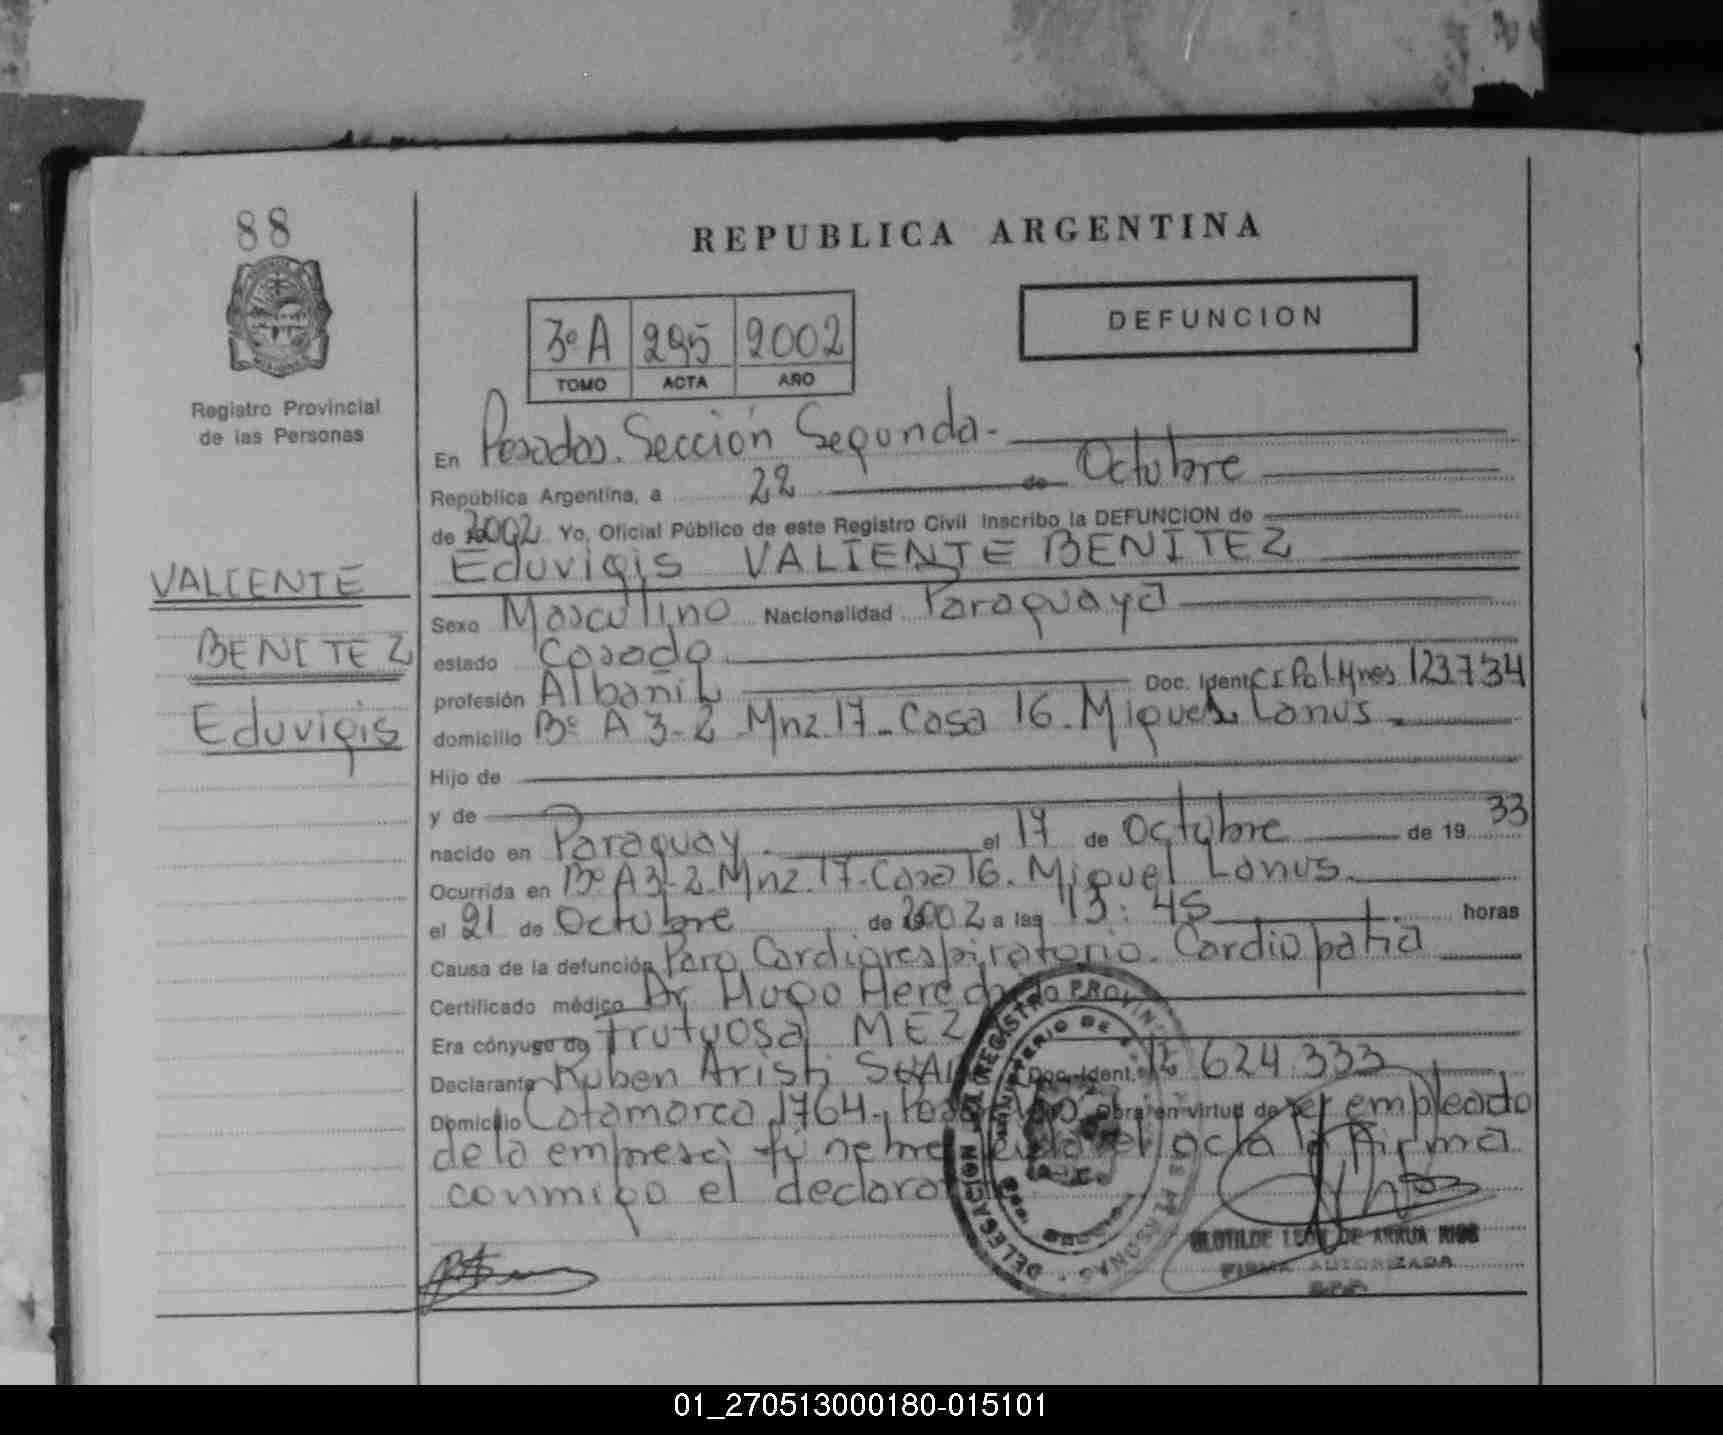 88
REPUBLICA ARGENTINA
DEFUNCION
3º A 295 2002
TOMO ACTA AÑO
Registro Provincial
de las Personas
En Posadas. Sección Segunda.-
República Argentina, a 22 de Octubre
de 2002 Yo, Oficial Público de este Registro Civil inscribo la DEFUNCION de
Eduvigis VALIENTE BENITEZ
VALIENTE
BENITEZ
Eduvigis
Sexo Masculino Nacionalidad Paraguaya
estado Casado
profesión Albañil Doc. Ident. C I Pol. Mnes 123.734
domicilio Bº A 3-2 - Mnz. 17 - Casa 16. Miguel Lanus.
Hijo de
y de
nacido en Paraguay. el 17 de Octubre de 19 33
Ocurrida en Bº A3-2. Mnz. 17. Casa 16. Miguel Lanus.
el 21 de Octubre de 2002 a las 13:45 horas
Causa de la defunción Paro Cardiorespiratorio. Cardiopatia
Certificado médico Dr Hugo
Era cónyuge de Frutuosa MEZ
Declarante Ruben Aristi Doc. Ident. 12 624.333
Domicilio Catamarca 1764. Obra en virtud de ser empleado
de la empresa el acta la firma
conmigo el
DELEGACION REGISTRO PERSONAS
MINISTERIO DE
CLOTILDE LEON DE ARRUA RIOS
FIRMA AUTORIZADA
01_270513000180-015101